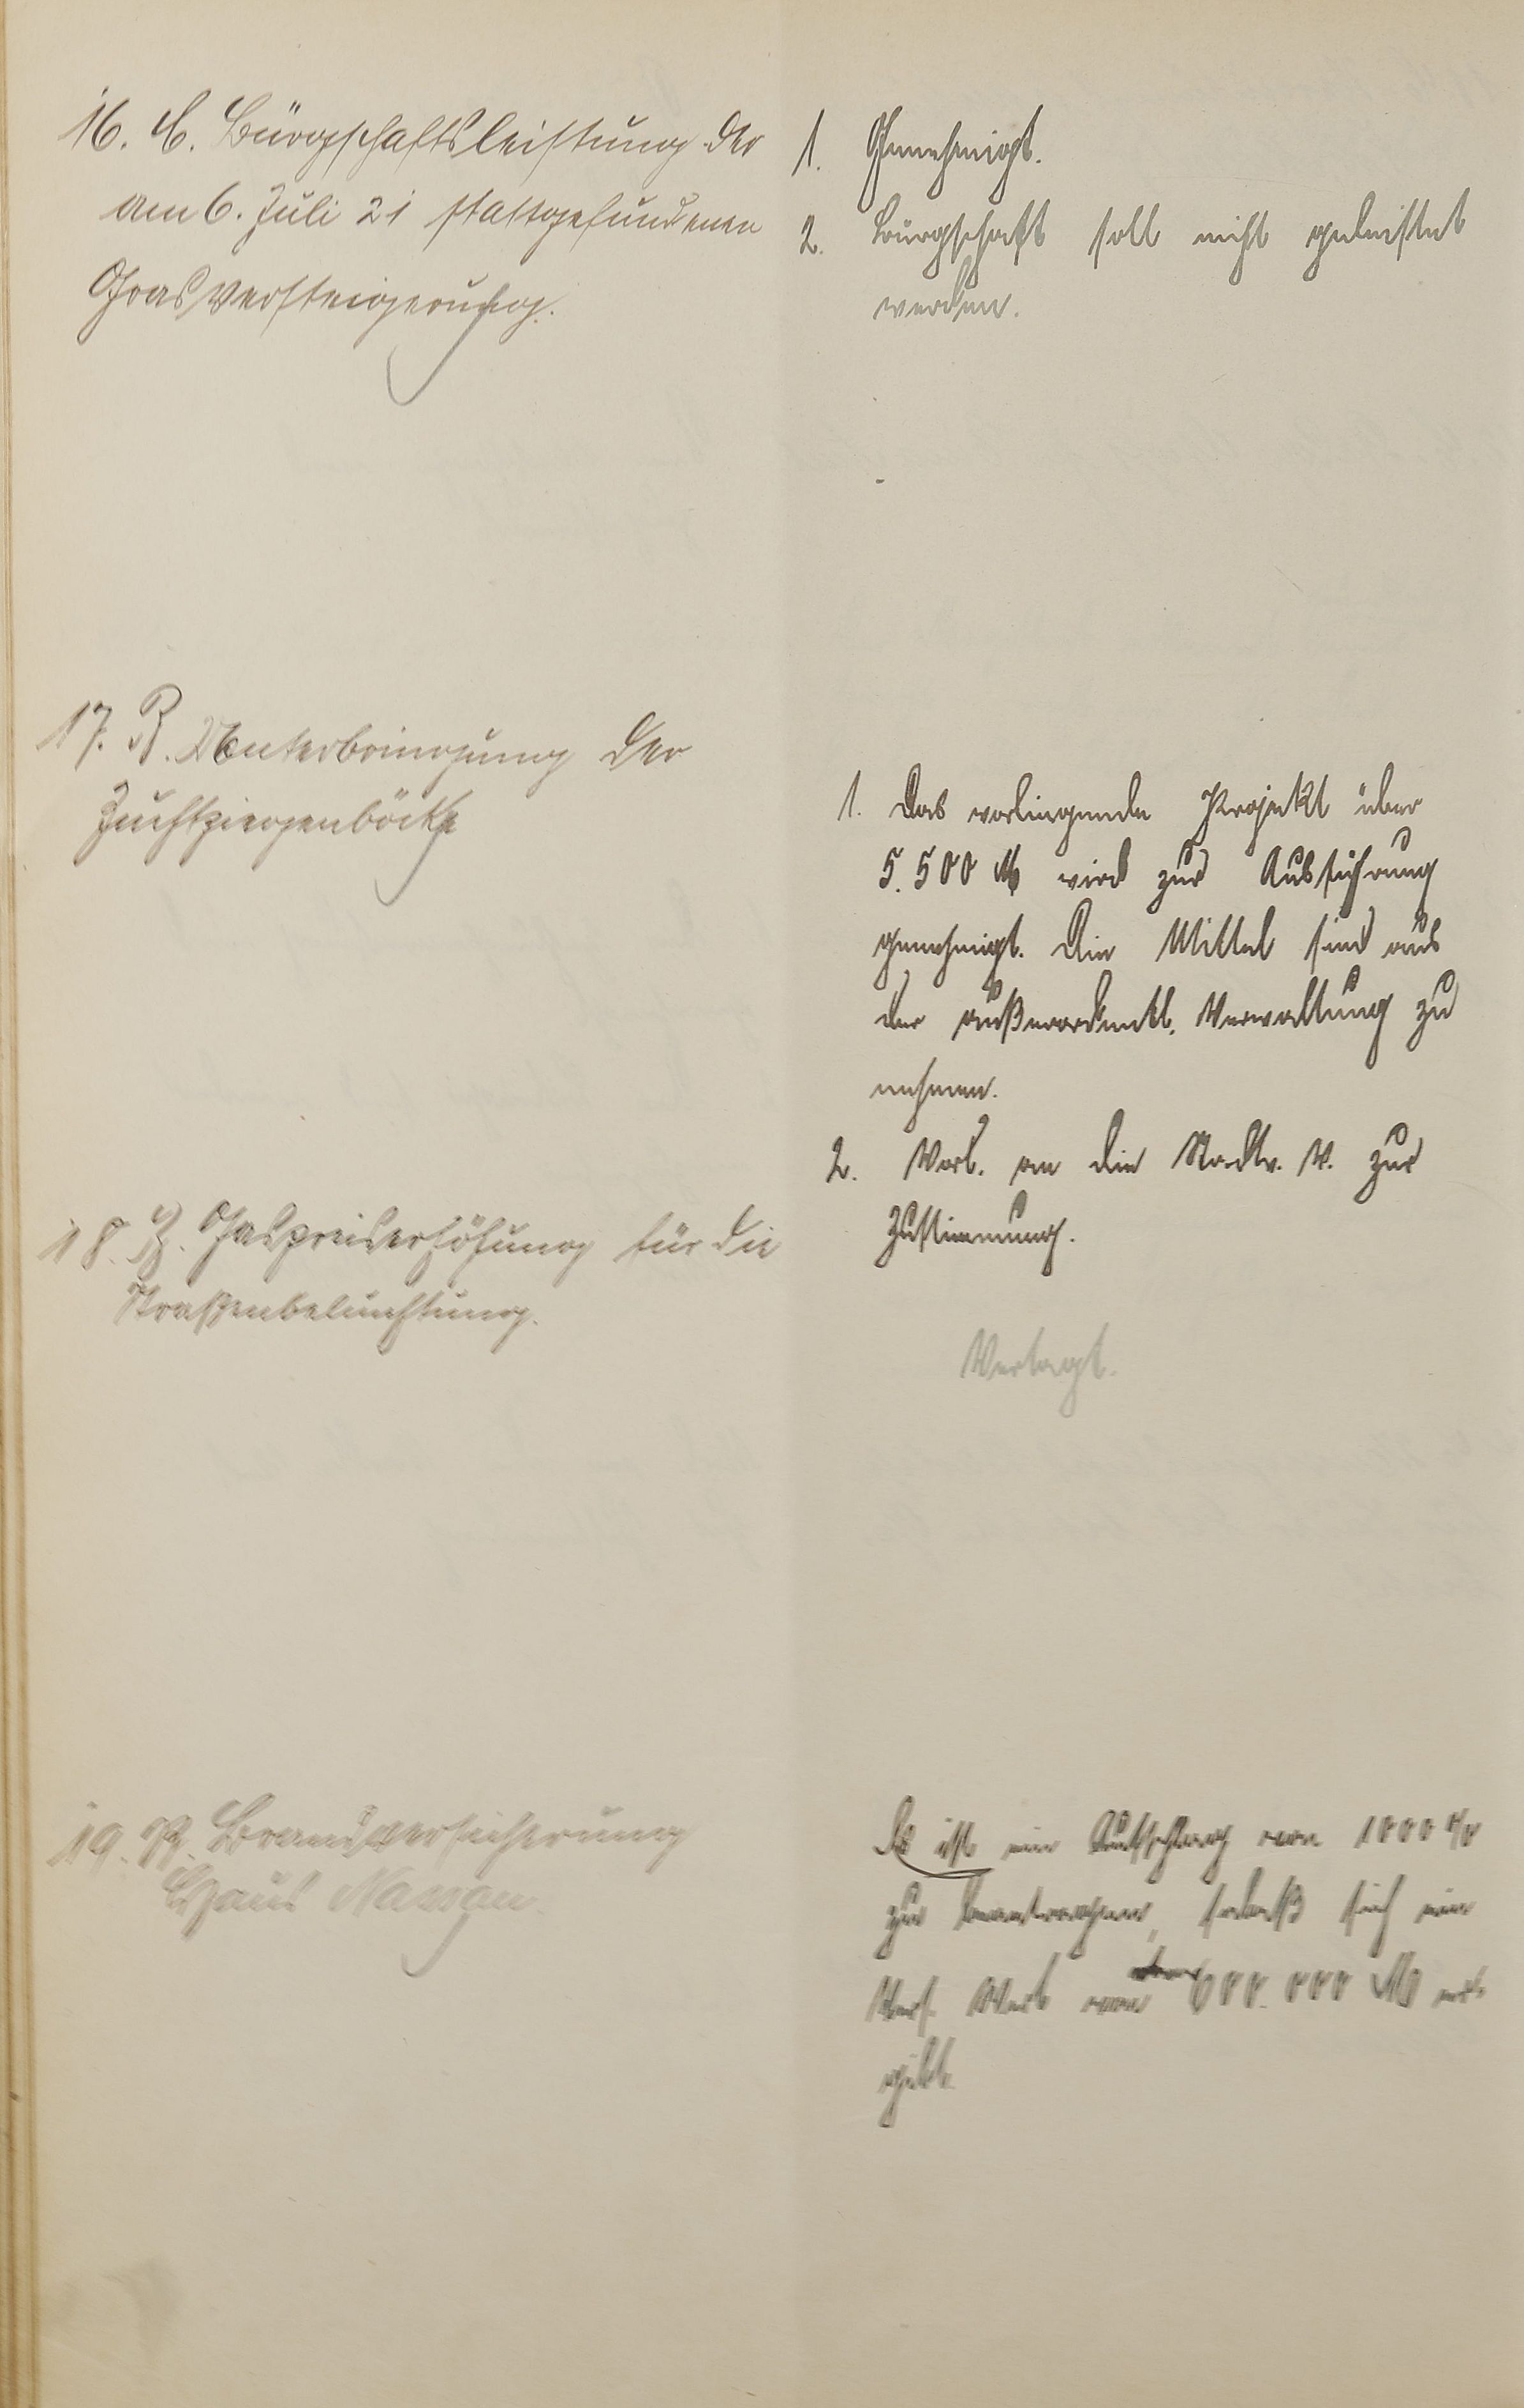 16. C. Bürgschaftsleistung der
am 6. Juli 21 stattgefundenen
Grasversteigerung.
1. Genehmigt.
2. Bürgschaft soll nicht geleistet
werden.
17. B. Unterbringung der
Zuchtziegenböcke
1. Das vorliegende Projekt über
5.500 M wird zur Ausführung
genehmigt. Die Mittel sind aus
der außerordentl. Verwaltung zu
nehmen.
2. Vorl. an die Stadtv. V. zur
Zustimmung.
18. B. Gaspreiserhöhung für die
Straßenbeleuchtung.
Vertagt.
19. B. Brandversicherung
Haus Nassau.
Es ist ein Aufschlag von 1000 %
zu beantragen, sodaß sich ein
Vers. Wert von 600.000 M er-
gibt.